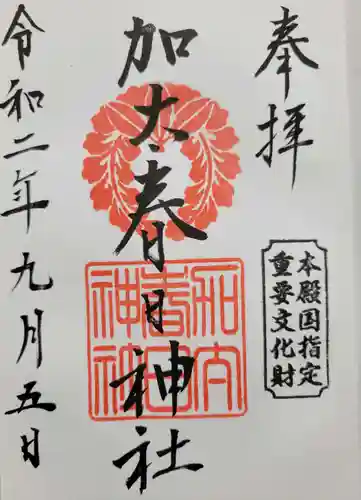 奉拝
本殿国指定
重要文化財
加太春日神社
令和二年九月五日